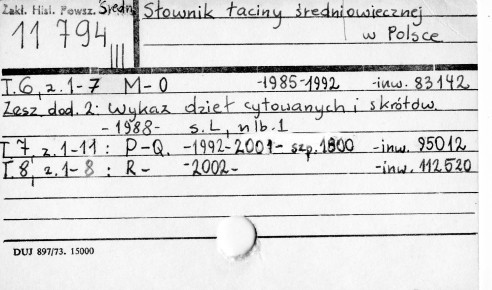 Zakł. Hist. Powsz. Średn.
11 794 III
Słownik łaciny średniowiecznej
w Polsce
T.6, z.1-7 M-O -1985-1992 -inw. 83142
Zesz. dod. 2: Wykaz dzieł cytowanych i skrótów.
-1988- s. L, nlb. 1
T.7, z.1-11: P-Q. -1992-2001- szp. 1800 -inw. 95012
T.8, z.1-8: R- -2002- -inw. 112520
DUJ 897/73. 15000